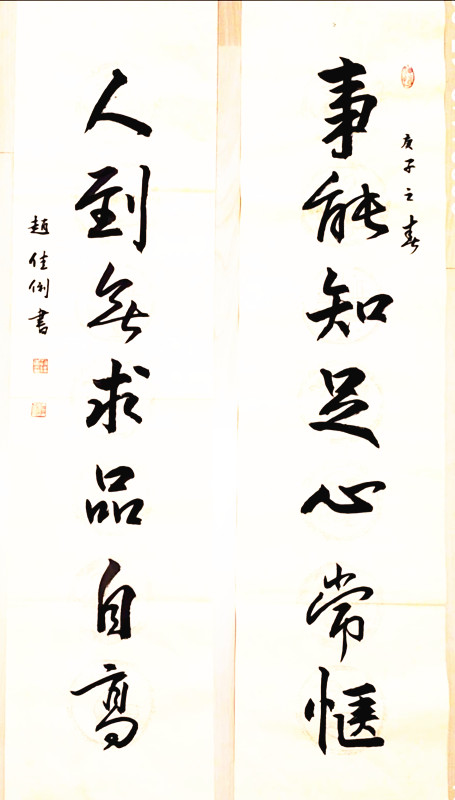 庚子之春
事能知足心常愜
人到無求品自高
趙佳俐書